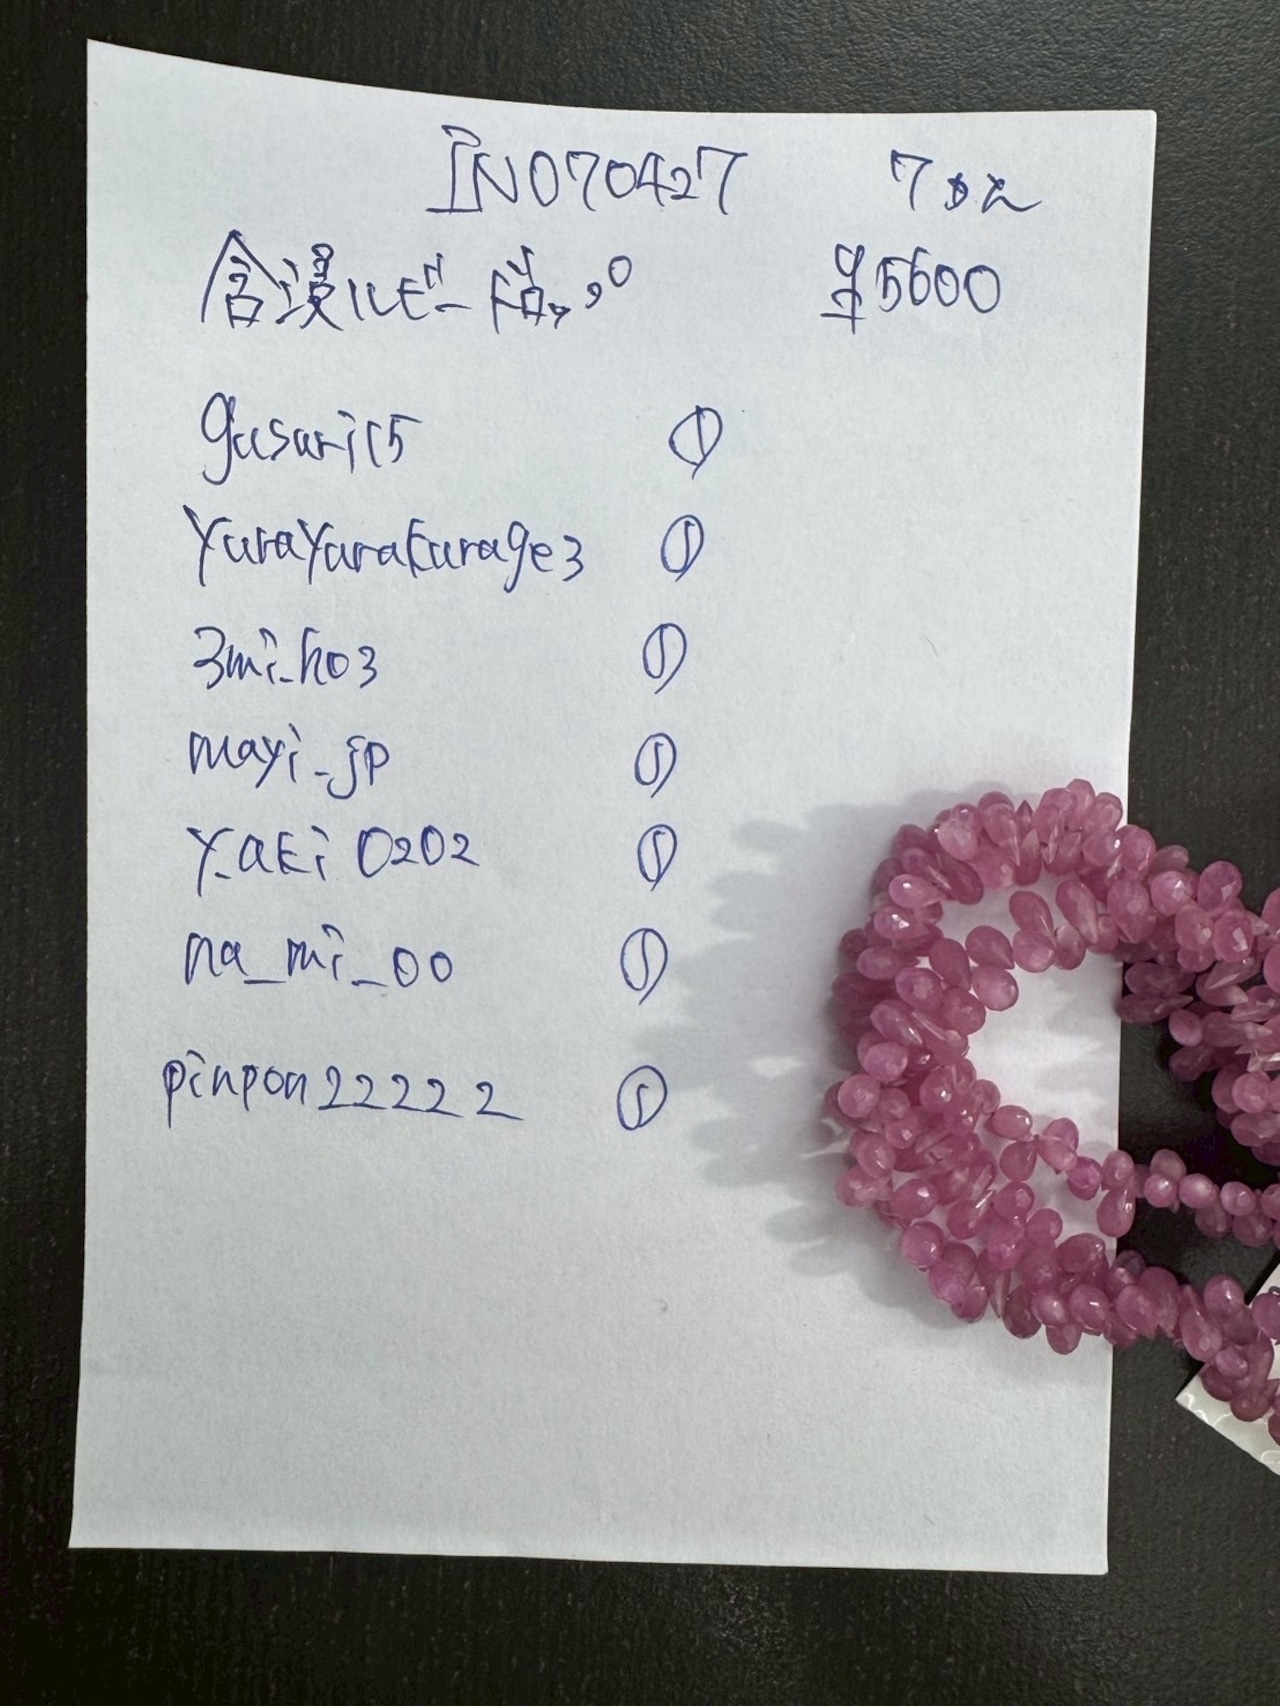 IN070427 7本
含浸ルビー ドロップ
gusuri15 ①
yurayurakurage3 ①
3mi_ho3 ①
mayi_jp ①
y.aki0202 ①
na_mi_00 ①
pinpon22222 ①
¥5600